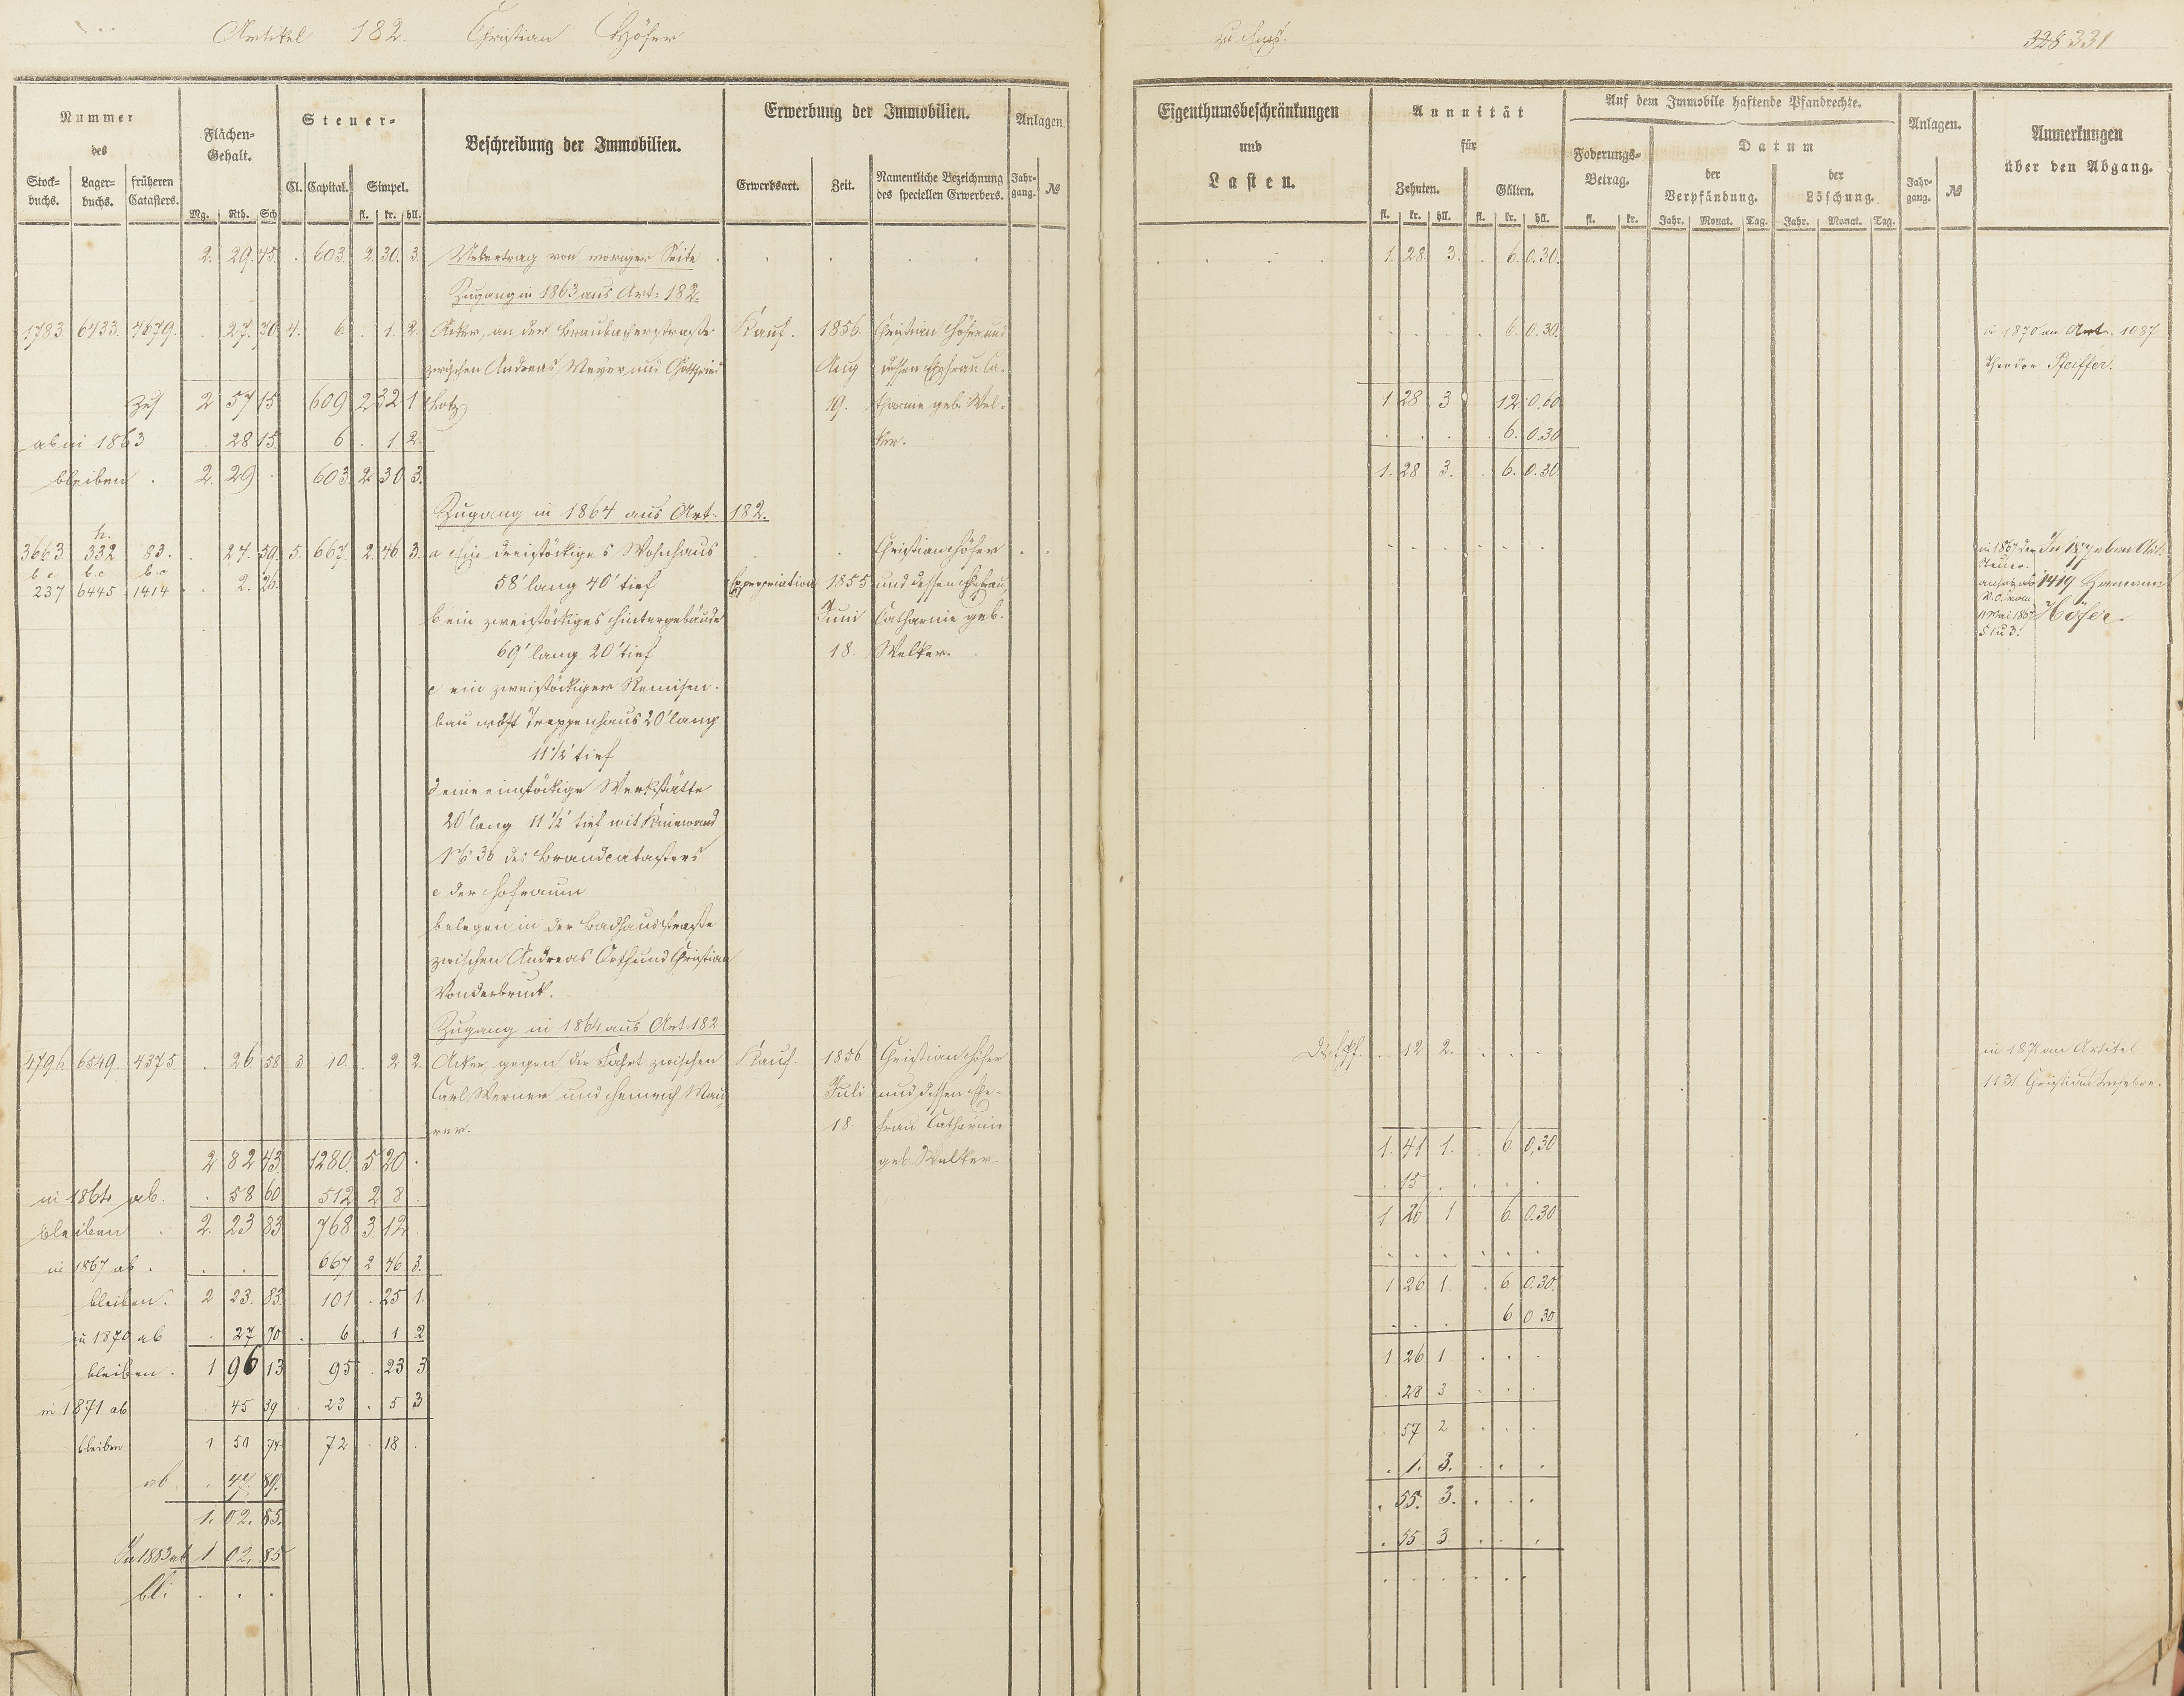 Artikel 182. Christian Höfer
zu Ems.
328 331
Nummer des
Stock-buchs. Lager-buchs. früheren Catasters.
Flächen-Gehalt.
Mg. Rth. Sch
Steuer-
Cl. Capital. Simpel.
fl. kr. hll.
Beschreibung der Immobilien.
Erwerbung der Immobilien.
Erwerbsart. Zeit. Namentliche Bezeichnung des speciellen Erwerbers.
Anlagen.
Jahr-gang. №
Eigenthumsbeschränkungen
und
Lasten.
Annuität
für
Zehnten. Gülten.
fl. kr. hll. fl. kr. hll.
Auf dem Immobile haftende Pfandrechte.
Foderungs-Betrag.
fl. kr.
Datum
der Verpfändung. der Löschung.
Jahr. Monat. Tag. Jahr. Monat. Tag.
Anlagen.
Jahr-gang. №
Anmerkungen
über den Abgang.
2. 29. 45. . 603. 2. 30. 3. Uebertrag von voriger Seite 1. 28. 3. . 6. 0.30.
Zugang in 1863 aus Art. 182.
1783 6433. 4679. . 27. 70. 4. 6 . 1. 2. Acker, an der Braubacherstraße Kauf. 1856. Christian Höfer und . . . . 6. 0.30. in 1870 an Art. 1087
zwischen Andreas Meyer und Gottfried Aug dessen Ehefrau Ca- Theodor Pfeiffer.
Zus 2 57 15 609 2 32 1 Lotz. 19. tharine geb. Wel- 1 28 3 12. 0,60
ab in 1863 . 28 15. 6 . 1 2. ker. . . . . 6. 0.30
bleiben . 2. 29 . 603 2 30 3. 1. 28 3. . 6. 0.30
Zugang in 1864 aus Art. 182.
3663 h. 332 83. . 27. 59. 5. 667. 2. 46 3. a Ein dreistöckiges Wohnhaus Christian Höfer
b c b.c b.c
237 6445 1414 . 2. 26. 58' lang 40' tief Expropriation 1855 und dessen Ehefrau,
b ein zweistöckiges Hintergebäude Juni Catharine geb.
69' lang 20' tief 18. Welker.
in 1867 der
Steuer.
11 Mai 1867
1419 Hermann
Höfer.
c ein zweistöckiger Remisen-
bau nebst Treppenhaus 20' lang
11 1/2' tief
d eine einstöckige Werkstätte
20' lang 11 1/2' tief mit Kniewand
№ 36 des Brandcatasters
e der Hofraum
belegen in der Badhausstraße
zwischen Andreas Orth und Christian
Vonderbruck.
Zugang in 1864 aus Art 182
4796 6549. 4375 . 26. 58 3 10. . 2 2. Acker, gegen der Fahrt zwischen Kauf. 1856 Christian Höfer . 12 2. . . . in 1871 an Artikel
Carl Werner und Heinrich Mau- Juli und dessen Ehe- 1131 Christian
rer. 18 frau Catharine
2 82 43. 1280. 5 20 . geb. Welker. 1. 41 1. . 6. 0,30
in 1864 ab. . 58 60 512 2 8 . . 15 . . . .
bleiben . 2. 23 83 768 3. 12 1 26 1 6. 0.30
in 1867 ab . . . 667 2 46 3. . . . . . .
bleiben. 2 23. 83. 101 . 25 1. 1 26 1. . 6 0.30.
in 1870 ab . 27 70 . 6 . 1 2 . . . 6 0 30
bleiben. 1 96 13 95 . 23 3 1 26 1 . . .
in 1871 ab . 45 39 . 23 . 5 3 . 28 3 . . .
bleiben 1 50 74 72 . 18 . 57 2 . . .
ab . 47. 89. . 1. 3. . . .
1. 02. 85. . 55. 3. . . .
In 1883 ab 1 02. 85 . 55 3 . . .
bli . . . . . . . . .